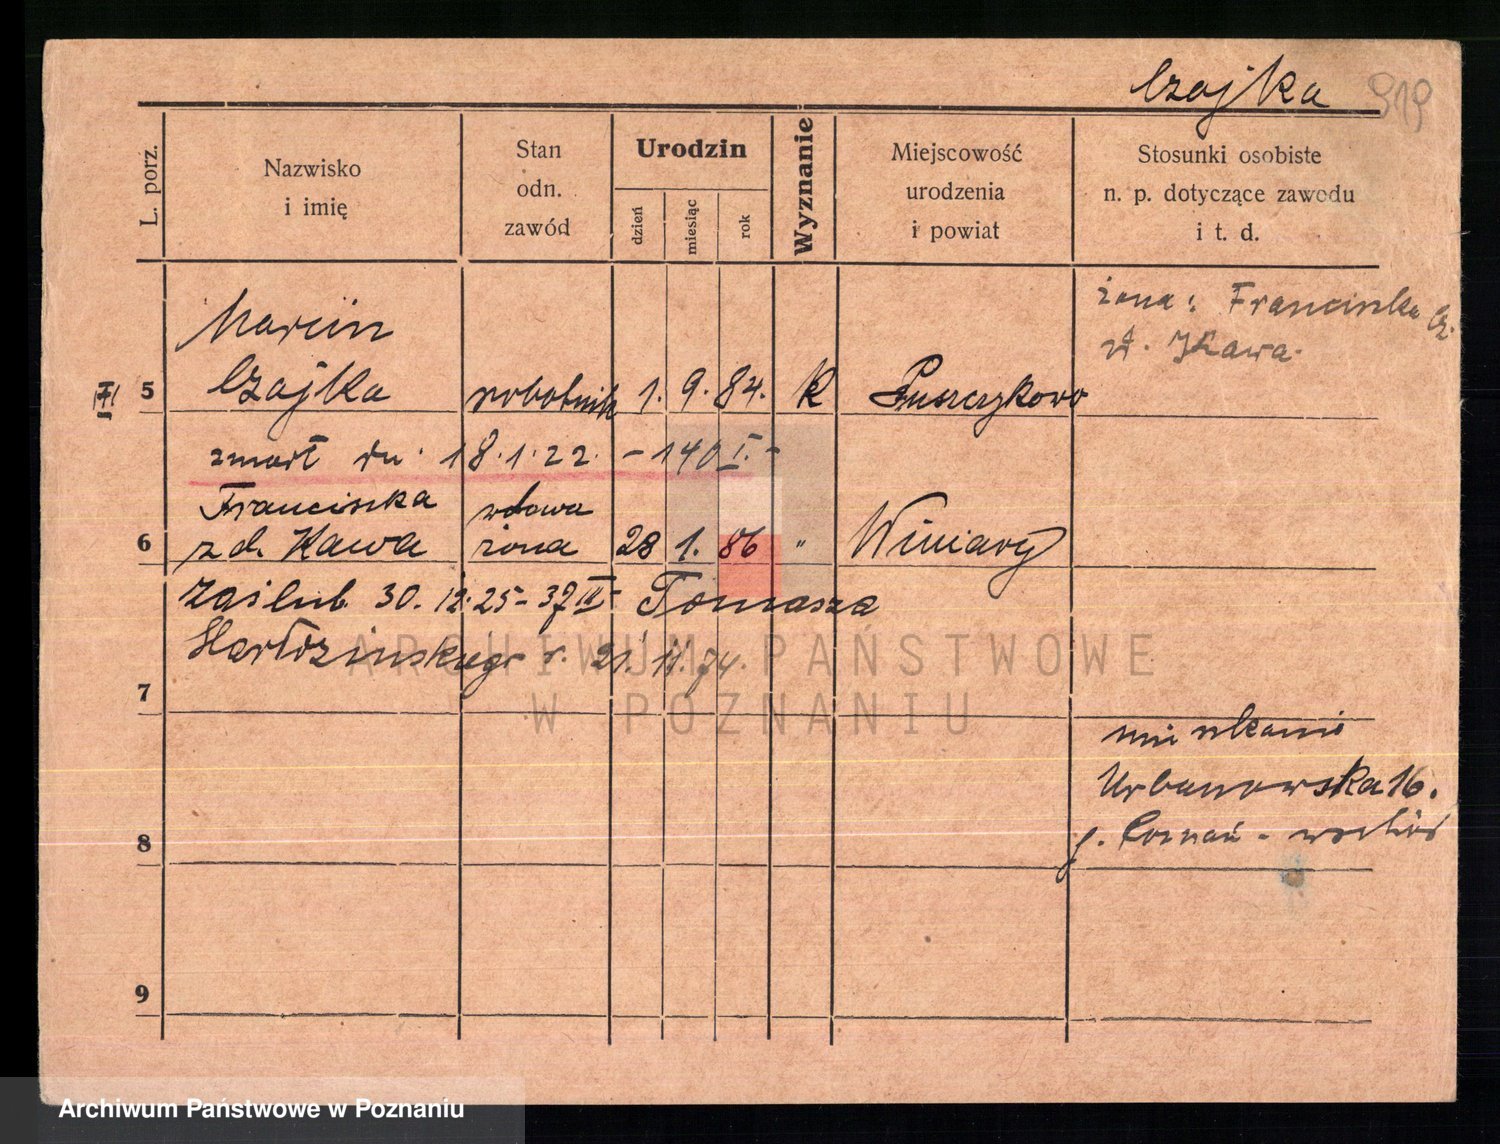 Czajka 919
L. porz.
Nazwisko
i imię
Stan
odn.
zawód
Urodzin
dzień
miesiąc
rok
Wyznanie
Miejscowość
urodzenia
i powiat
Stosunki osobiste
n. p. dotyczące zawodu
i t. d.
żona: Franciszka Cz.
zd. Kawa
Marcin
III 5 Czajka robotnik 1. 9. 84. K Puszczykowo
zmarł dn. 18.1.22. - 140 I. -
Franciszka wdowa
6 z d. Kawa żona 28 1. 86 " Winiary
Zaślub. 30. 12. 25 - 37 II - Tomasza
r. 21. 11. 74.
7
mieszkanie
Urbanowska 16.
8
p. Poznań - wschód
9
ARCHIWUM PAŃSTWOWE
W POZNANIU
Archiwum Państwowe w Poznaniu